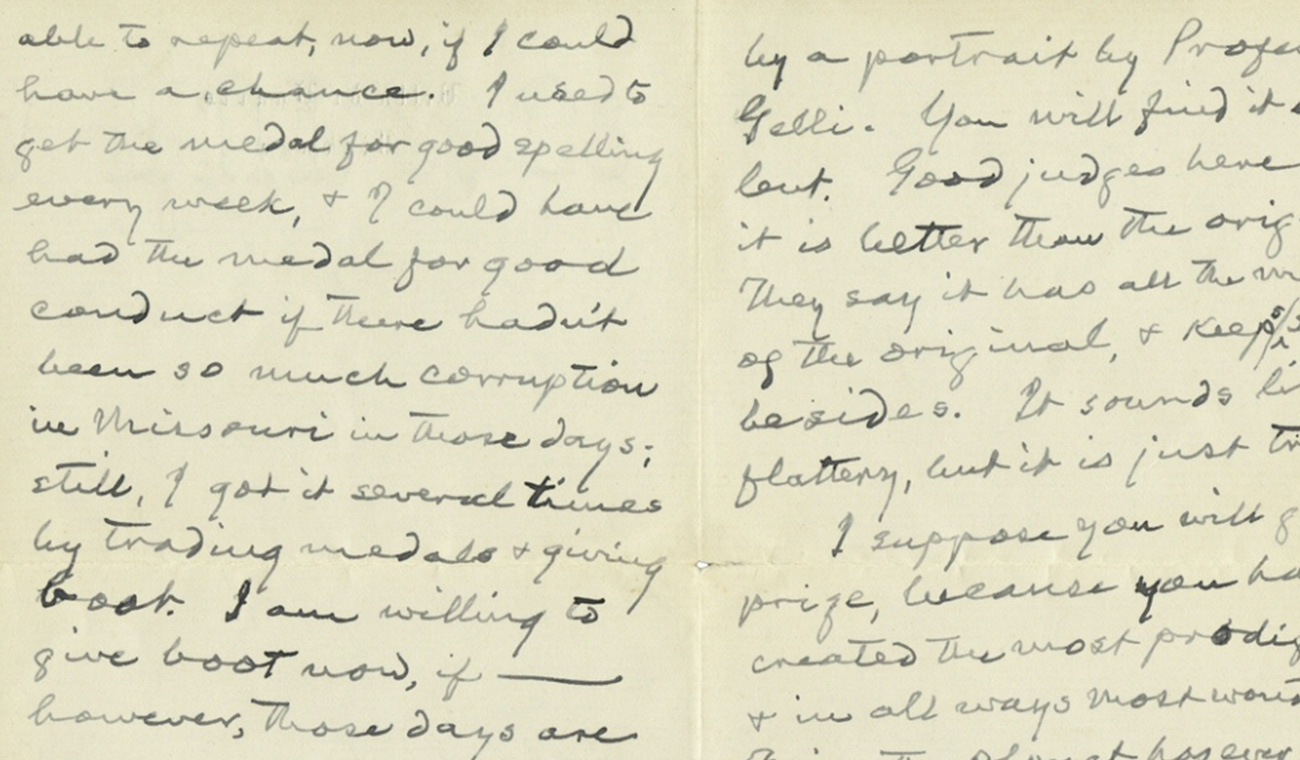 able to repeat, now, if I could
have a chance. I used to
get the medal for good spelling
every week, & I could have
had the medal for good
conduct if there hadn't
been so much corruption
in Missouri in those days;
still, I got it several times
by trading medals & giving
boot. I am willing to
give boot now, if ———
however, those days are
by a portrait by Profes
Gelli. You will find it
lent. Good judges here
it is better than the orig
They say it has all the
of the original, & keeps
besides. It sounds li
flattery, but it is just tr
I suppose you will g
prize, because you ha
created the most prodig
& in all ways most wond